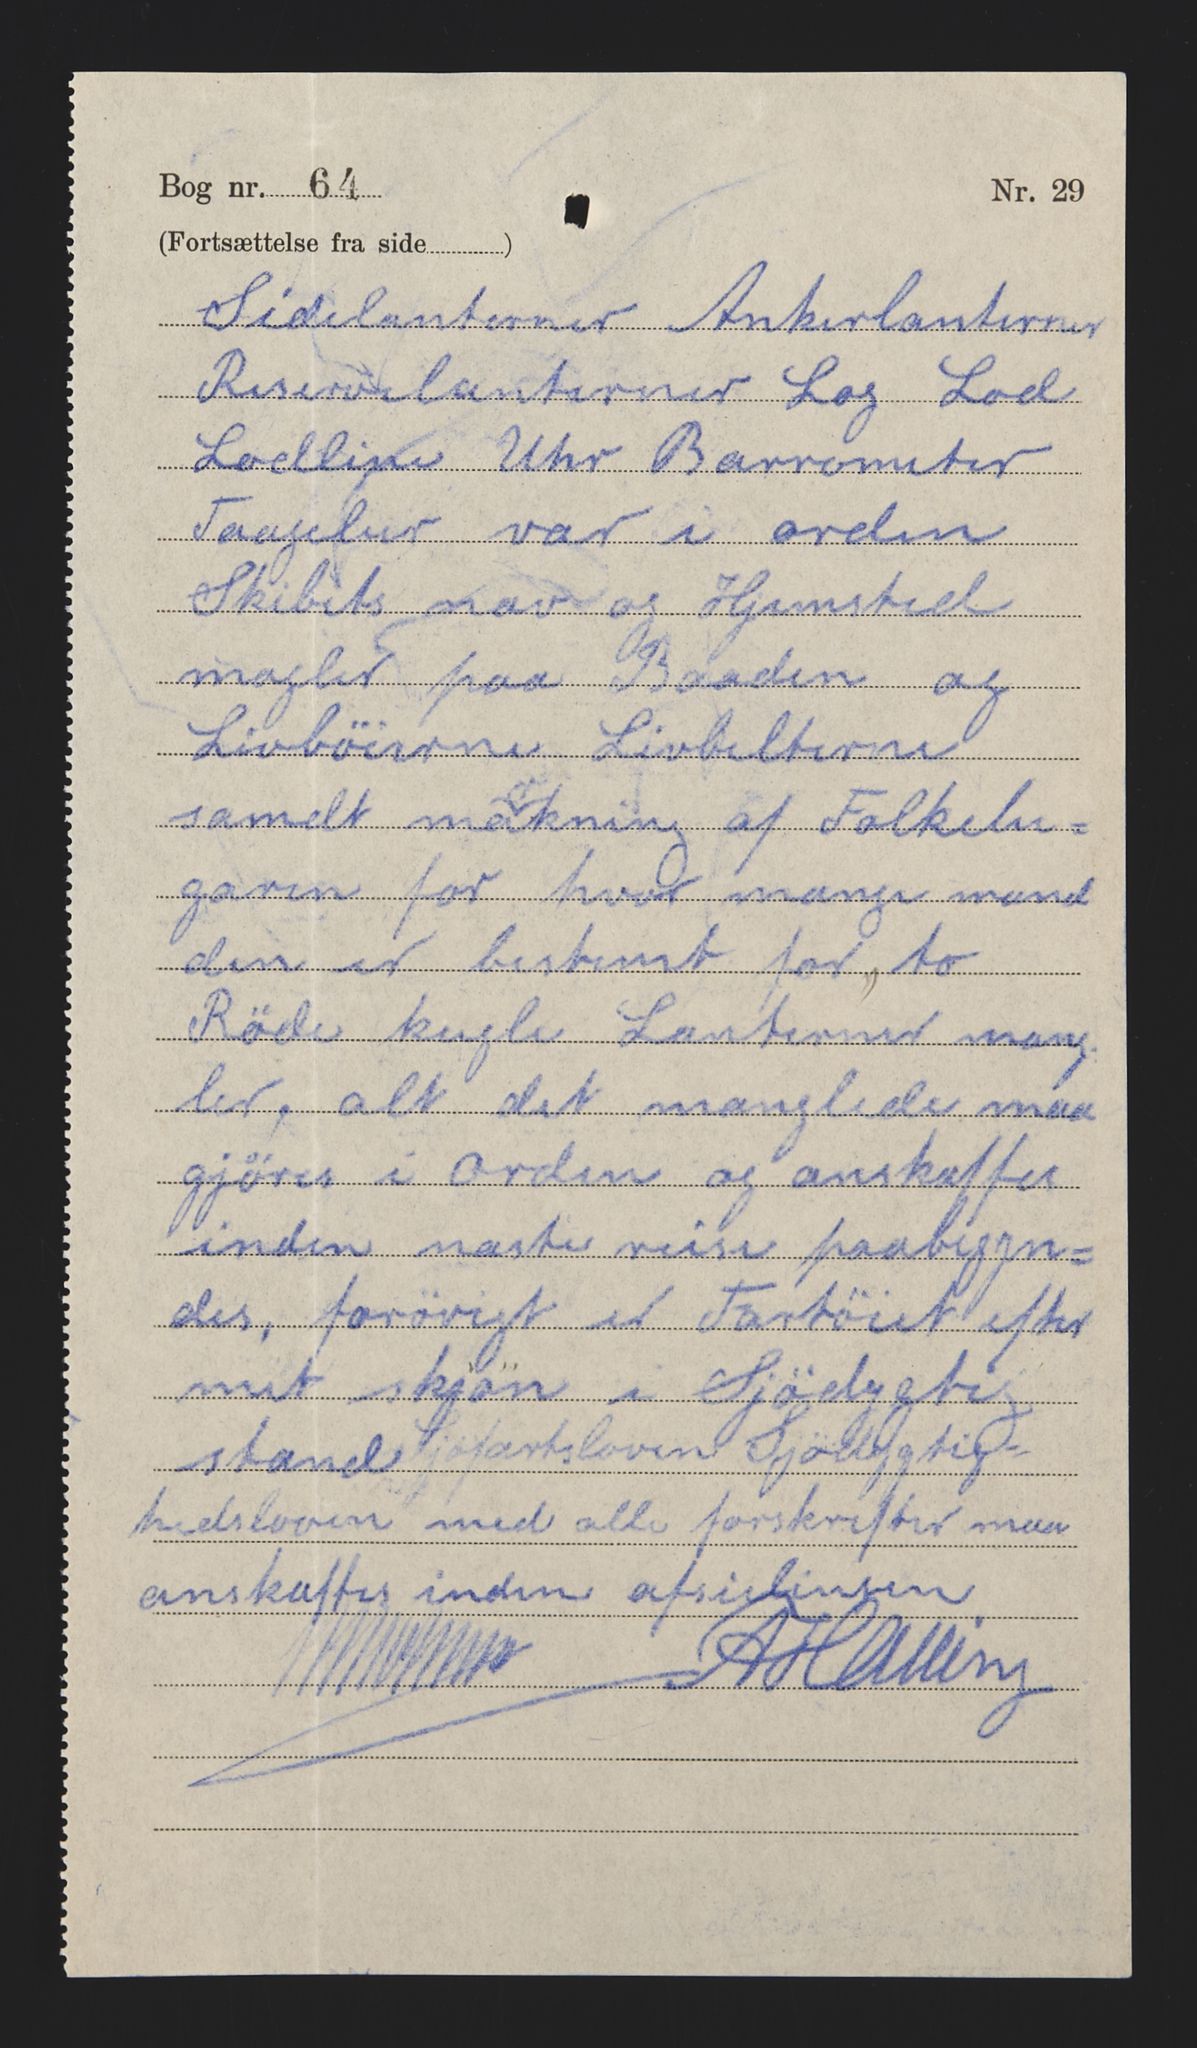 Bog nr. 64 Nr. 29
(Fortsættelse fra side )
Sidelanterner Ankerlanterner
Reservelanterner Log Lod
Lodline Uhr Barrometer
Taagelur var i orden
Skibets nav og Hjemsted
magler paa Baaden og
Livböierne Livbelterne
samelt mäkning af Folkelu=
garen for hvor mange mand
den er bestemt for, to
Röde kugle Lanterner mang-
ler, alt det manglede maa
gjöres i orden og anskaffes
inden naste reise paabegyn=
des, forövrigt er Fartöiet efter
mit skjön i Sjödygtig
stand Sjöfartsloven Sjödygtig-
hedsloven med alle forskrefter maa
anskaffes inden afseilinsen
A Halling